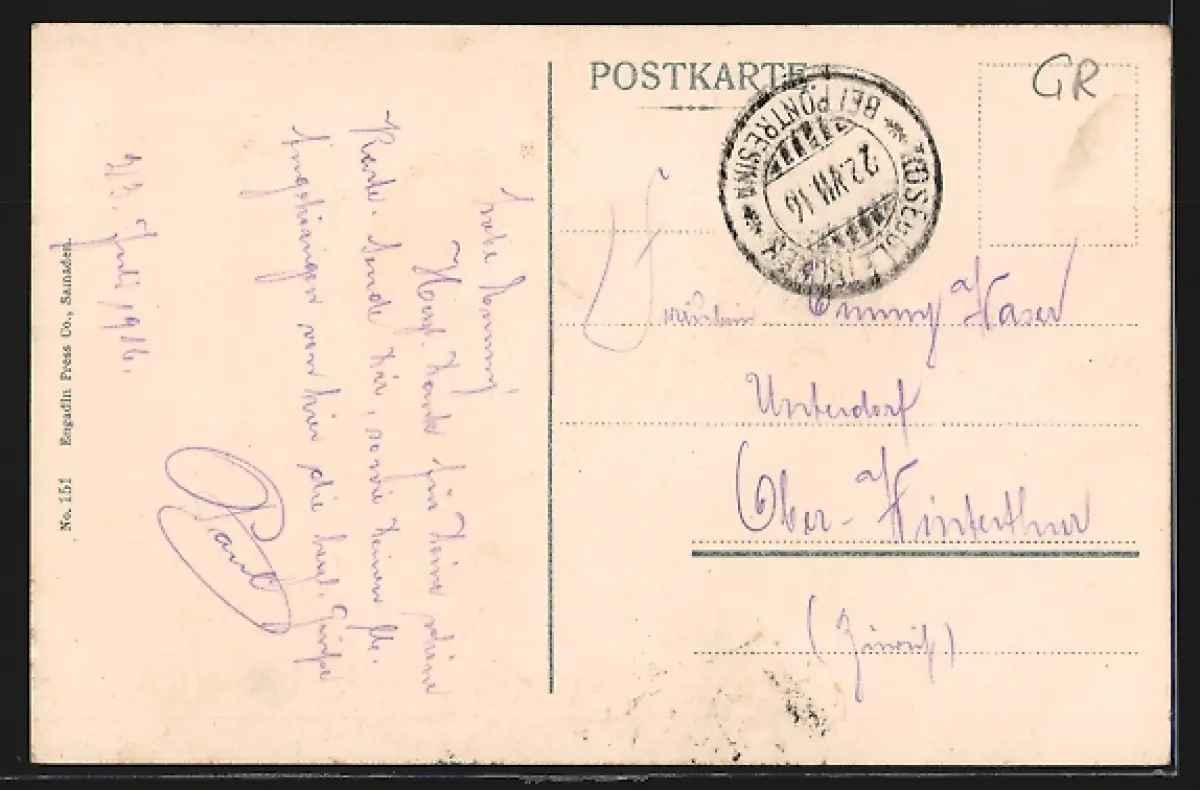 No. 151 Engadin Press Co., Samaden.
23. Juli 1916.
Liebe Emmy!
Herzl. Dank für Deine schöne
Karte. Sende Dir, sowie Deinen
von hier die herzl. Grüsse
Paul
POSTKARTE
BEI PONTRESINA
22.VII.16
GR
Fräulein Emmy Kaser
Unterdorf
Ober-Winterthur
(Zürich)